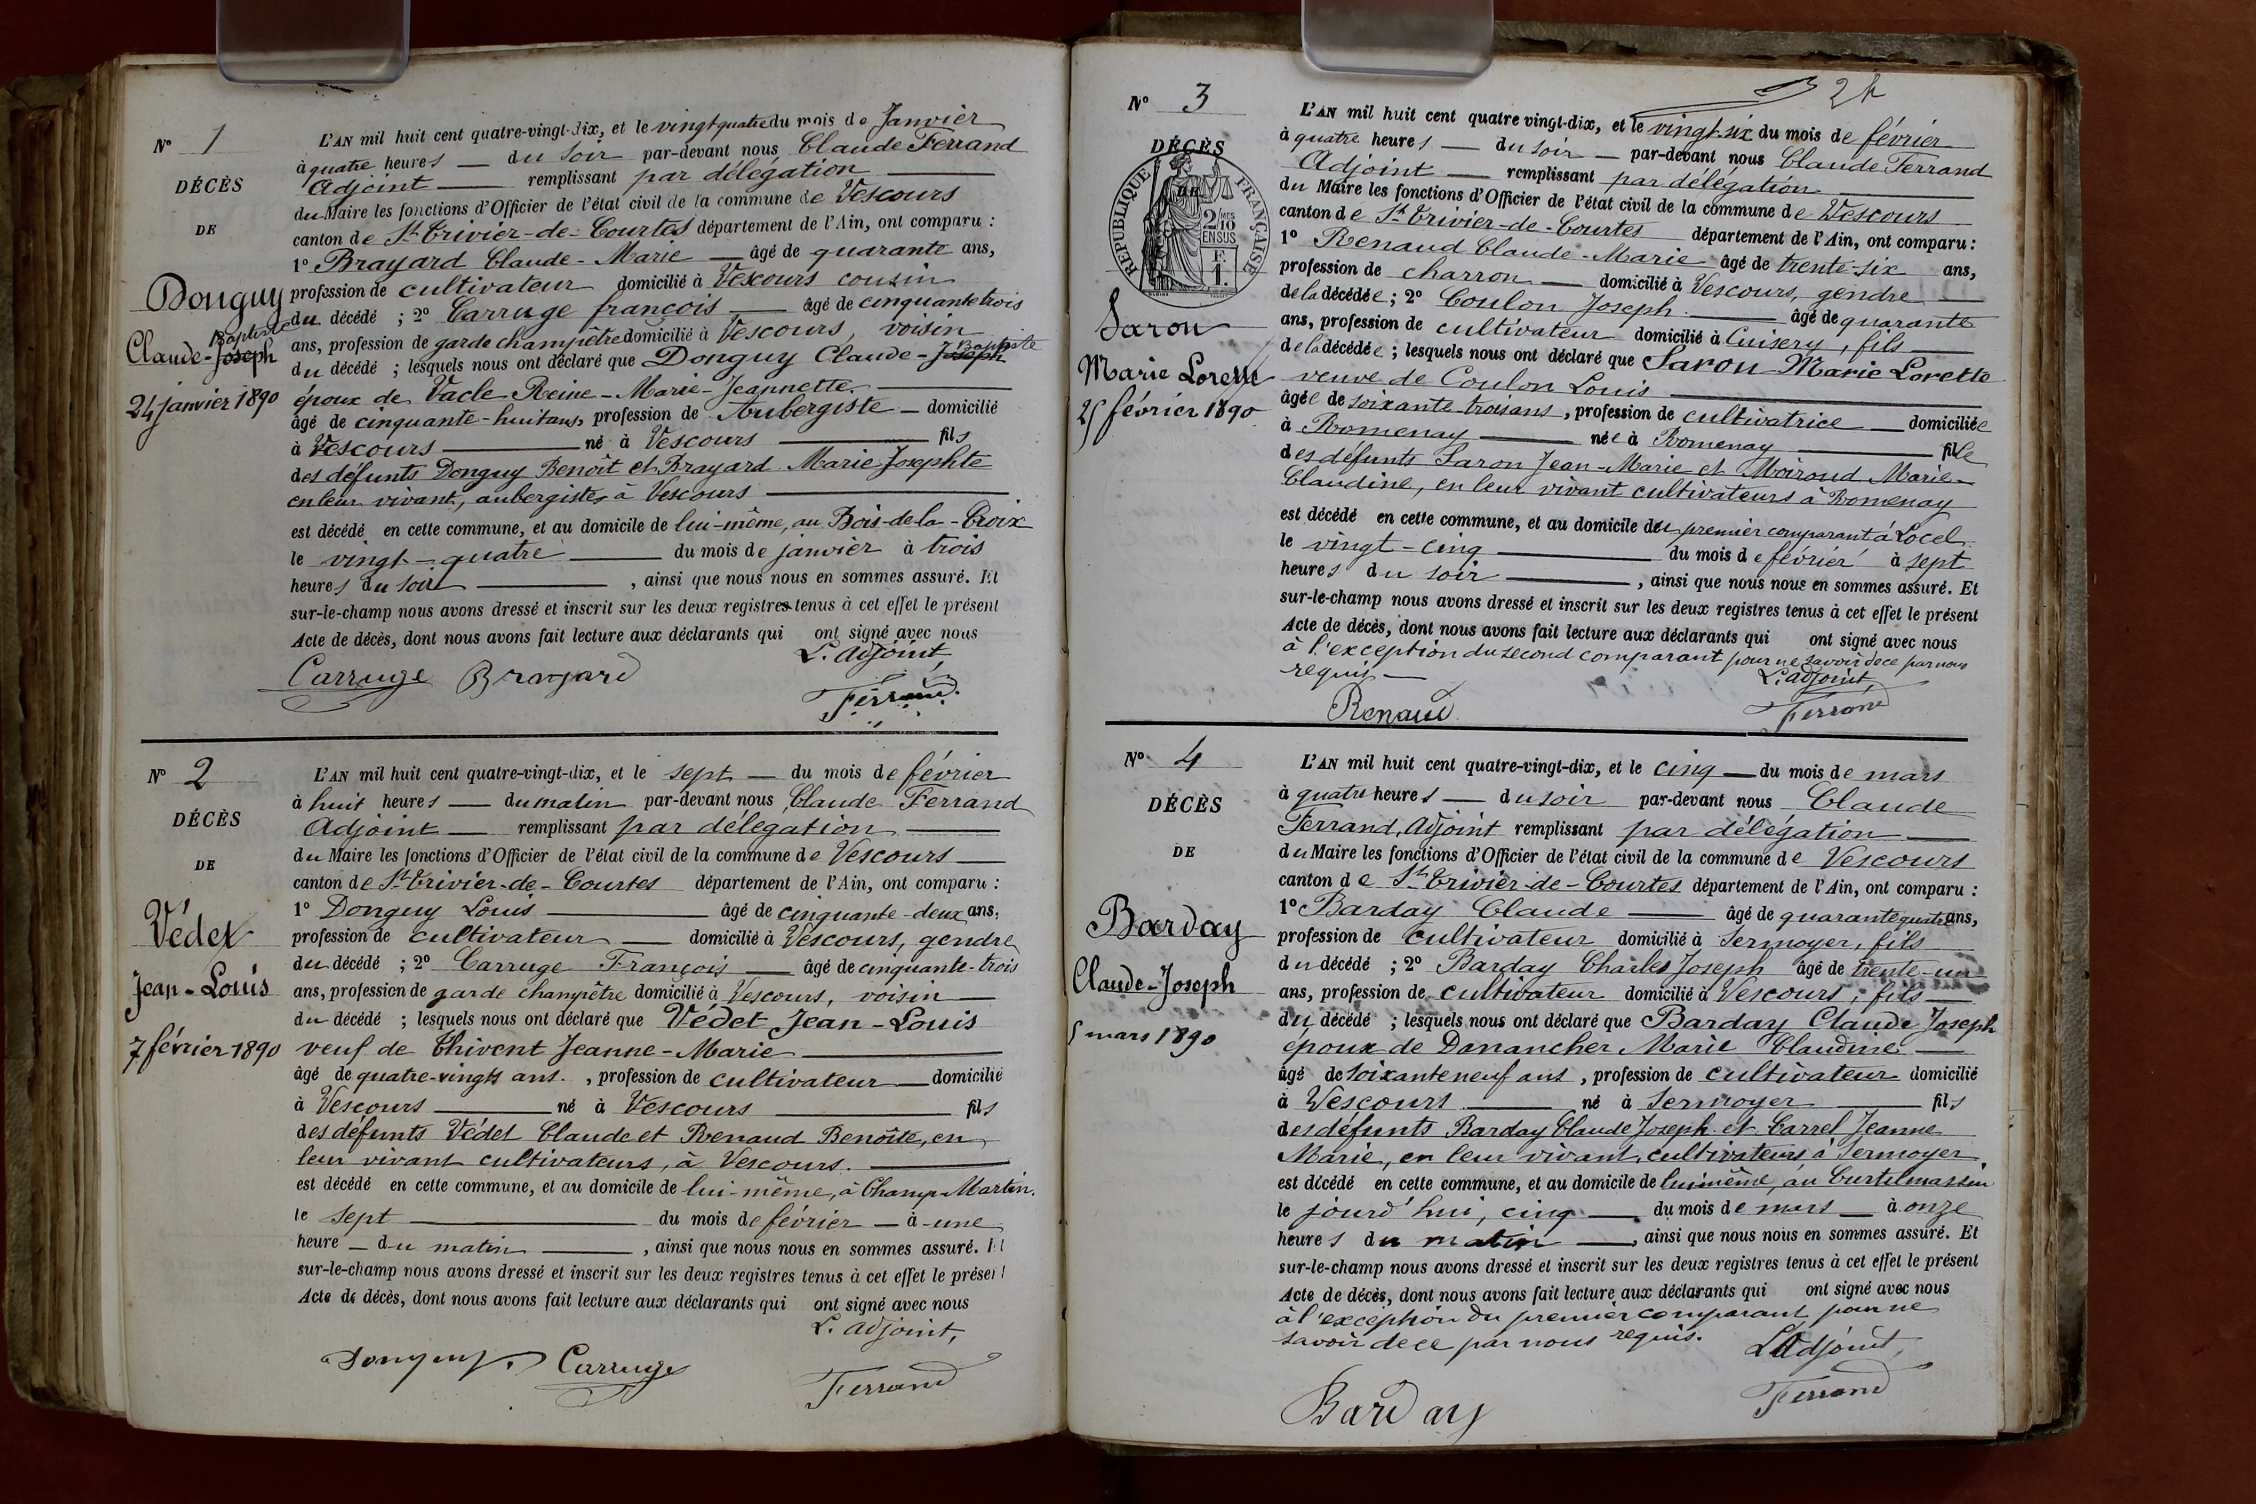 Nº 1
DÉCÈS
DE
Donguy
Baptiste
Claude-Joseph
24 janvier 1890
L'AN mil huit cent quatre-vingt-dix, et le vingt quatre du mois de Janvier
à quatre heures du soir par-devant nous Claude Ferrand
Adjoint remplissant par délégation
du Maire les fonctions d'Officier de l'état civil de la commune de Vescours
canton de St Trivier-de-Courtes département de l'Ain, ont comparu :
1º Brayard Claude-Marie âgé de quarante ans,
profession de cultivateur domicilié à Vescours cousin
du décédé ; 2º Carruge françois âgé de cinquante trois
ans, profession de garde champêtre domicilié à Vescours, voisin
du décédé ; lesquels nous ont déclaré que Donguy Claude-Joseph Baptiste
époux de Vacle Reine-Marie-Jeannette
âgé de cinquante-huit ans, profession de Aubergiste domicilié
à Vescours né à Vescours fils
des défunts Donguy Benoît et Brayard Marie Josephte
en leur vivant, aubergistes à Vescours
est décédé en cette commune, et au domicile de lui-même, au Bois-de-la-Croix
le vingt-quatre du mois de janvier à trois
heures du soir , ainsi que nous nous en sommes assuré. Et
sur-le-champ nous avons dressé et inscrit sur les deux registres tenus à cet effet le présent
Acte de décès, dont nous avons fait lecture aux déclarants qui ont signé avec nous
L'adjoint,
Carruge Brayard
Ferrand
Nº 2
DÉCÈS
DE
Védet
Jean-Louis
7 février 1890
L'AN mil huit cent quatre-vingt-dix, et le sept du mois de février
à huit heures du matin par-devant nous Claude Ferrand
Adjoint remplissant par délégation
du Maire les fonctions d'Officier de l'état civil de la commune de Vescours
canton de St Trivier-de-Courtes département de l'Ain, ont comparu :
1º Donguy Louis âgé de cinquante-deux ans,
profession de cultivateur domicilié à Vescours, gendre
du décédé ; 2º Carruge François âgé de cinquante-trois
ans, profession de garde champêtre domicilié à Vescours, voisin
du décédé ; lesquels nous ont déclaré que Védet Jean-Louis
veuf de Thivent Jeanne-Marie
âgé de quatre-vingts ans. , profession de cultivateur domicilié
à Vescours né à Vescours fils
des défunts Védet Claude et Renaud Benoîte, en
leur vivant cultivateurs, à Vescours.
est décédé en cette commune, et au domicile de lui-même, à Champ-Martin.
le sept du mois de février à une
heure du matin , ainsi que nous nous en sommes assuré. Et
sur-le-champ nous avons dressé et inscrit sur les deux registres tenus à cet effet le présent
Acte de décès, dont nous avons fait lecture aux déclarants qui ont signé avec nous
L'adjoint,
Donguy Carruge
Ferrand
24
Nº 3
DÉCÈS
RÉPUBLIQUE FRANÇAISE
DE
2 MES
10
EN SUS
F.
1.
Saron
Marie Lorette
25 février 1890
L'AN mil huit cent quatre vingt-dix, et le vingt-six du mois de février
à quatre heures du soir par-devant nous Claude Ferrand
Adjoint remplissant par délégation
du Maire les fonctions d'Officier de l'état civil de la commune de Vescours
canton de St Trivier-de-Courtes département de l'Ain, ont comparu :
1º Renaud Claude-Marie âgé de trente-six ans,
profession de charron domicilié à Vescours, gendre
de la décédée ; 2º Coulon Joseph âgé de quarante
ans, profession de cultivateur domicilié à Cuisery, fils
de la décédée ; lesquels nous ont déclaré que Saron Marie Lorette
veuve de Coulon Louis
âgée de soixante trois ans, profession de cultivatrice domiciliée
à Romenay née à Romenay fille
des défunts Saron Jean-Marie et Moiroud Marie-
Claudine, en leur vivant cultivateurs à Romenay
est décédé en cette commune, et au domicile du premier comparant à Locel
le vingt-cinq du mois de février à sept
heures du soir , ainsi que nous nous en sommes assuré. Et
sur-le-champ nous avons dressé et inscrit sur les deux registres tenus à cet effet le présent
Acte de décès, dont nous avons fait lecture aux déclarants qui ont signé avec nous
à l'exception du second comparant pour ne savoir de ce par nous
requis
L'adjoint,
Renaud
Ferrand
Nº 4
DÉCÈS
DE
Barday
Claude-Joseph
5 mars 1890
L'AN mil huit cent quatre-vingt-dix, et le cinq du mois de mars
à quatre heures du soir par-devant nous Claude
Ferrand, Adjoint remplissant par délégation
du Maire les fonctions d'Officier de l'état civil de la commune de Vescours
canton de St Trivier-de-Courtes département de l'Ain, ont comparu :
1º Barday Claude âgé de quarante quatre ans,
profession de cultivateur domicilié à Sermoyer, fils
du décédé ; 2º Barday Charles Joseph âgé de trente-un
ans, profession de cultivateur domicilié à Vescours, fils
du décédé ; lesquels nous ont déclaré que Barday Claude Joseph
époux de Danancher Marie Claudine
âgé de soixante neuf ans, profession de cultivateur domicilié
à Vescours né à Sermoyer fils
des défunts Barday Claude Joseph et Carrel Jeanne
Marie, en leur vivant, cultivateurs à Sermoyer
est décédé en cette commune, et au domicile de lui même, au Curtilmassin
le jourd'hui, cinq du mois de mars à onze
heures du matin , ainsi que nous nous en sommes assuré. Et
sur-le-champ nous avons dressé et inscrit sur les deux registres tenus à cet effet le présent
Acte de décès, dont nous avons fait lecture aux déclarants qui ont signé avec nous
à l'exception du premier comparant pour ne
savoir de ce par nous requis.
L'Adjoint,
Barday
Ferrand